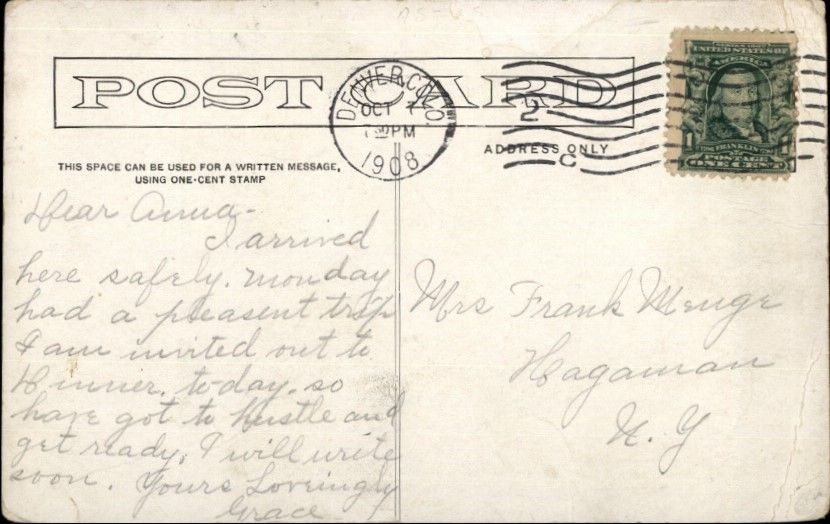 POST CARD
DENVER, COLO.
OCT 7
PM
1908
2
C
SERIES 1902
UNITED STATES OF
AMERICA
FRANKLIN
POSTAGE
ONE CENT
THIS SPACE CAN BE USED FOR A WRITTEN MESSAGE,
USING ONE-CENT STAMP
ADDRESS ONLY
Dear Anna-
I arrived
here safely. monday
had a pleasent trip
I am invited out to
Dinner. to-day. so
have got to hustle and
get ready, I will write
soon. Yours Loveingly
Grace
Mrs Frank Menge
Hagaman
N. Y